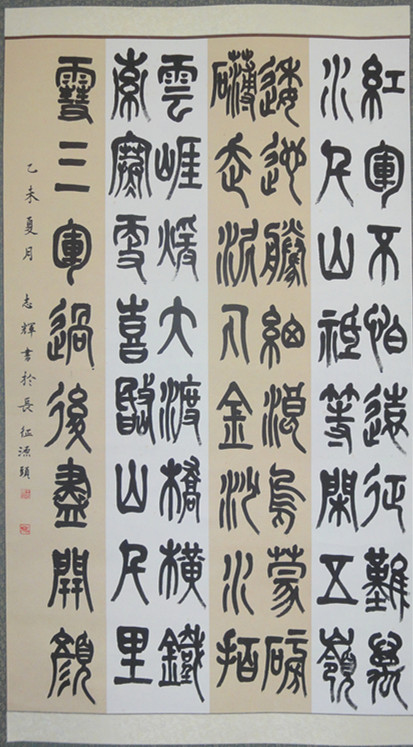 紅軍不怕遠征難萬
水千山祗等閑五嶺
逶迤騰細浪烏蒙磅
礴走泥丸金沙水拍
雲崖煖大渡橋橫鐵
索寒更喜岷山千里
雪三軍過後盡開顏
乙未夏月 志輝書於長征源頭